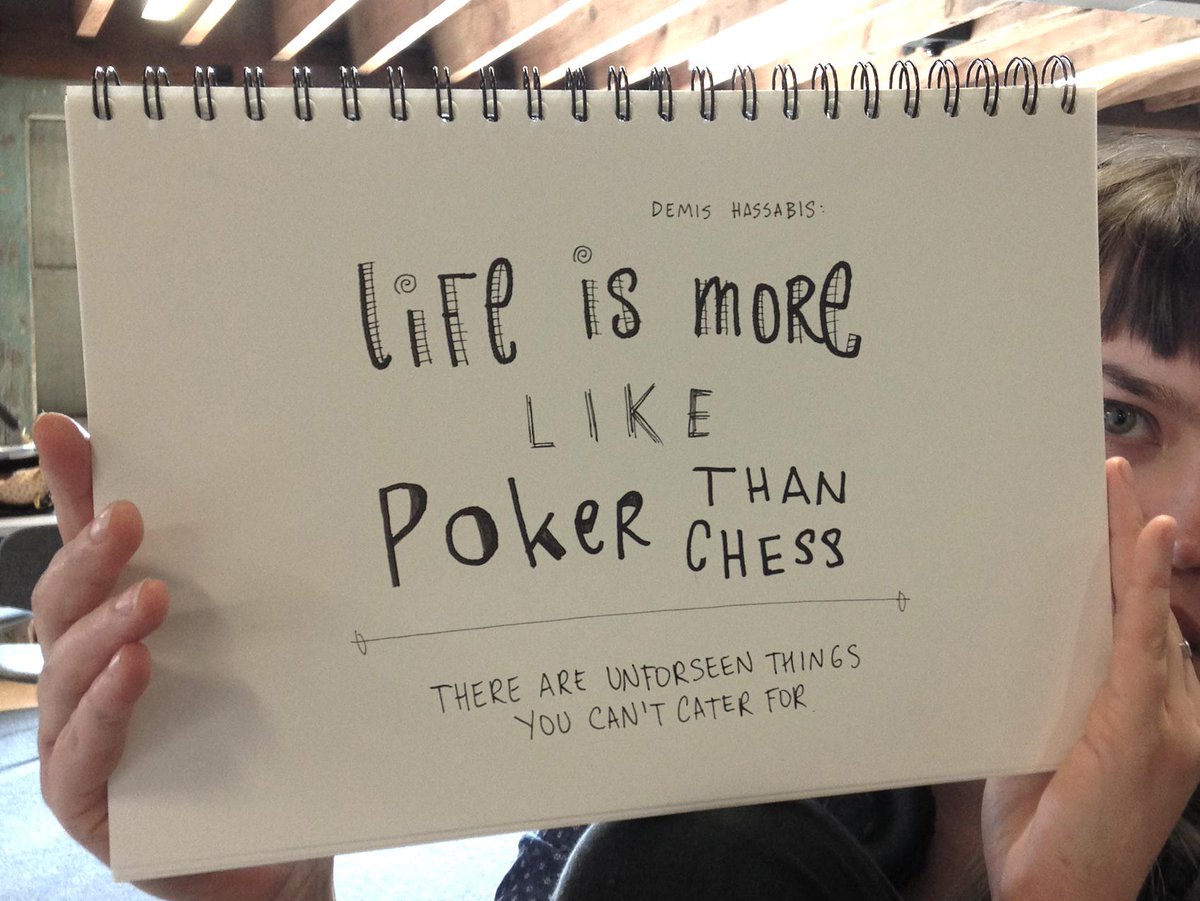 DEMIS HASSABIS:
life is more
LIKE
Poker THAN
CHESS
THERE ARE UNFORSEEN THINGS
YOU CAN'T CATER FOR.